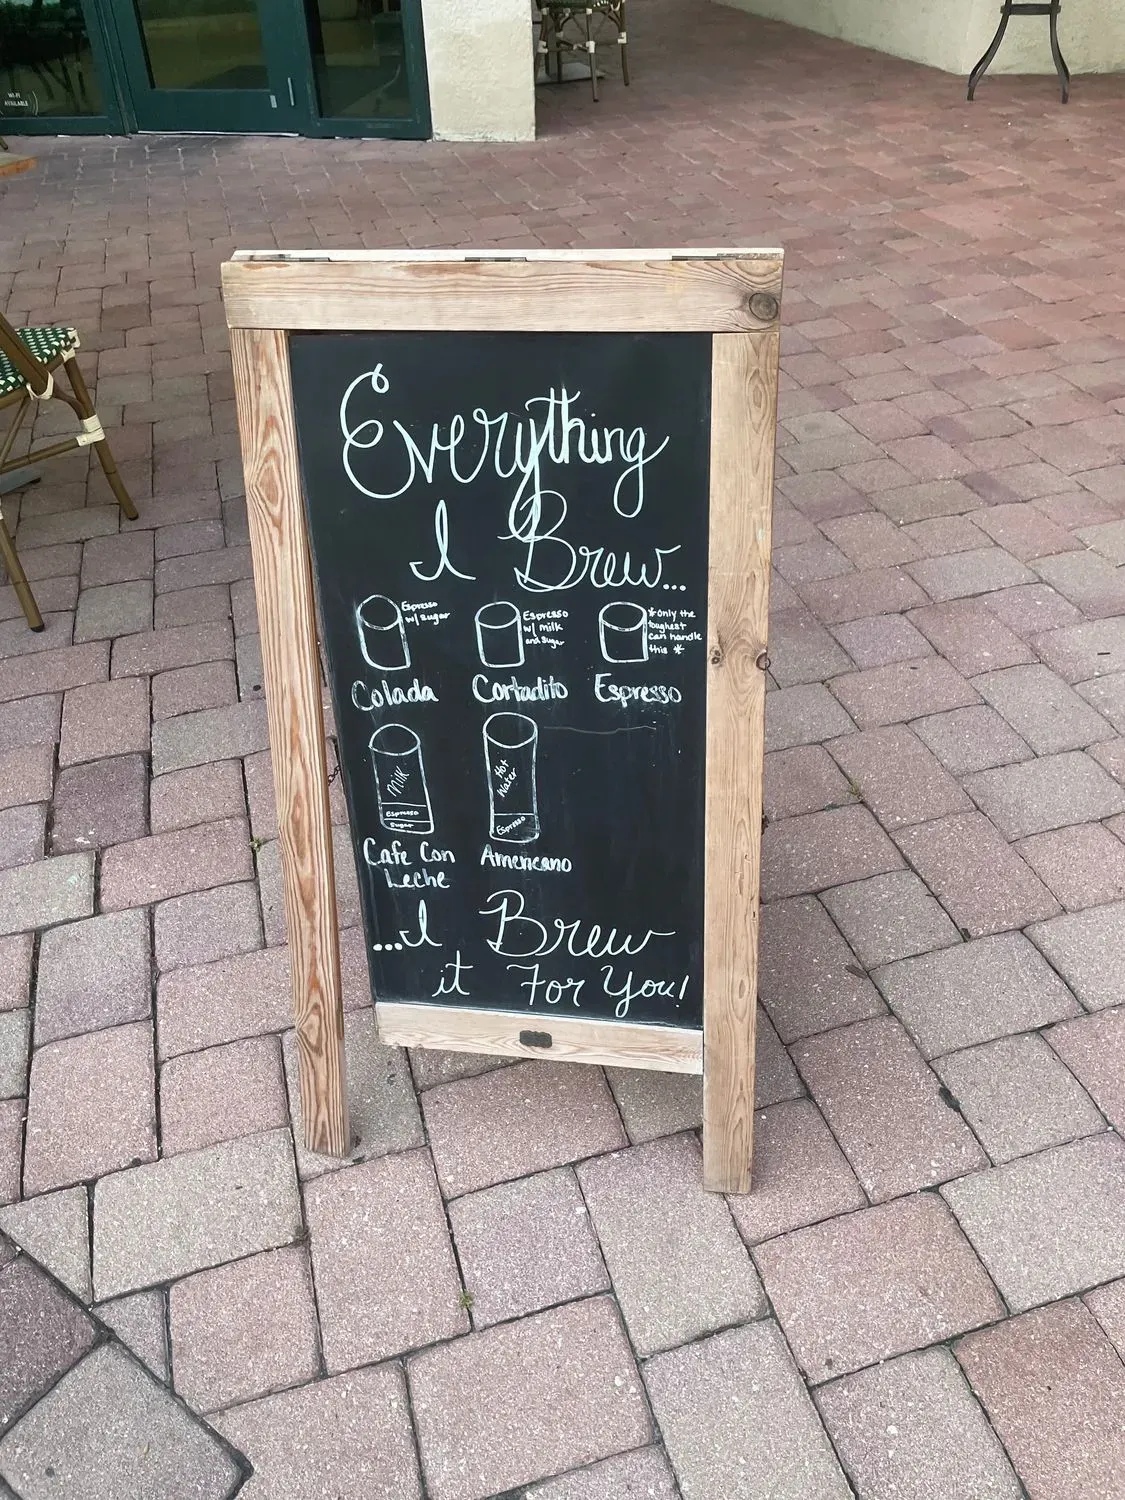 WI-FI
AVAILABLE
Everything
I Brew...
Espresso
w/ sugar
Colada
Espresso
w/ milk
and sugar
Cortadito
*only the
toughest
can handle
this *
Espresso
Milk
Espresso
Sugar
Cafe Con
Leche
Hot
Water
Espresso
Americano
...I Brew
it For You!